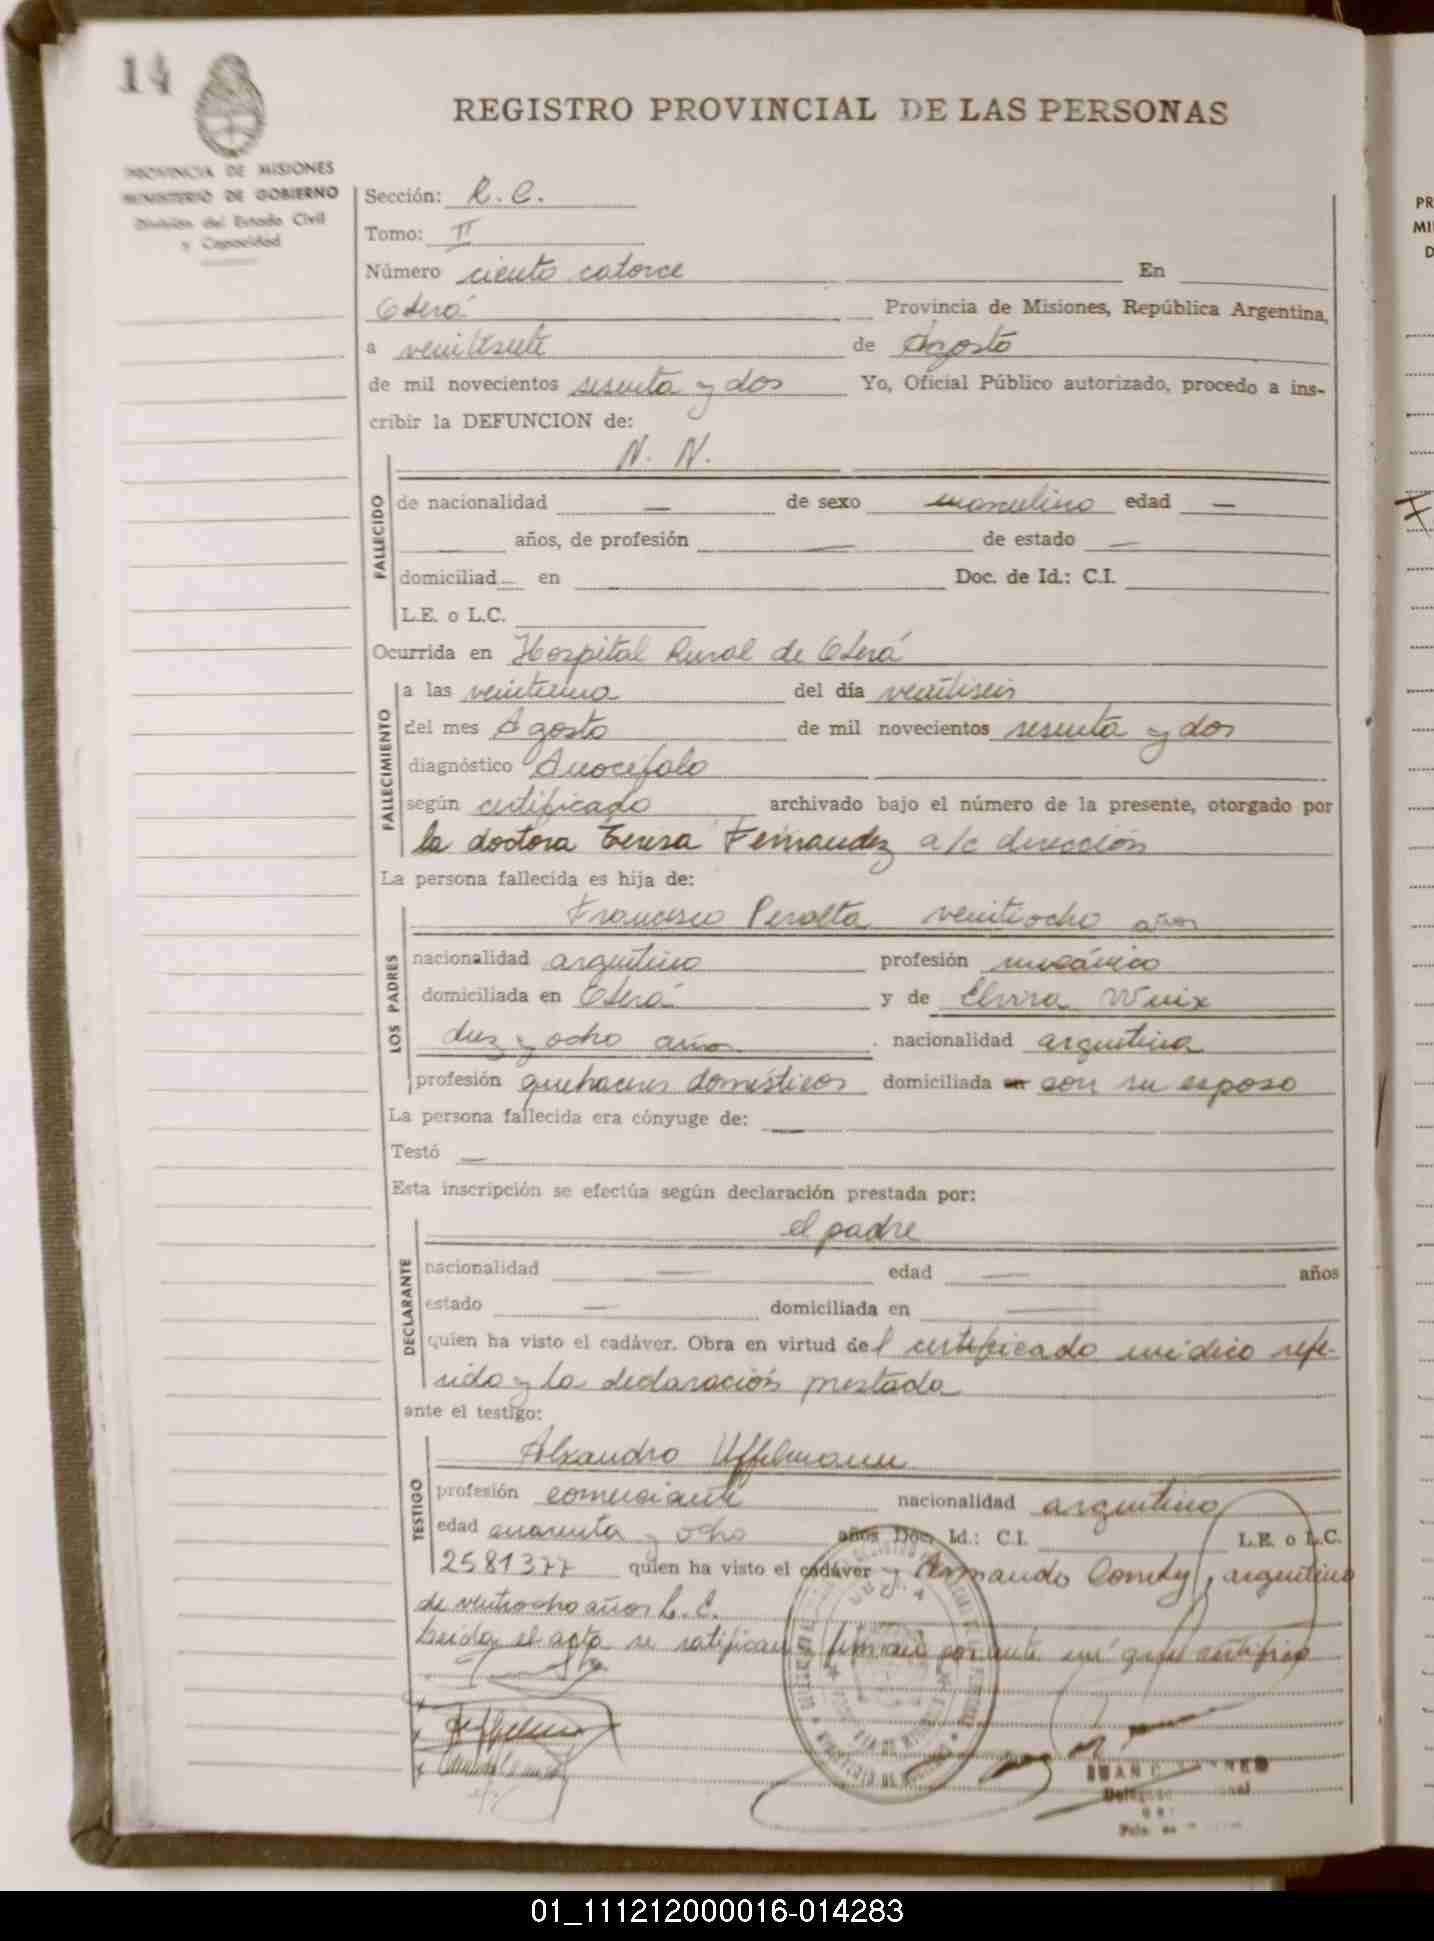 14
REGISTRO PROVINCIAL DE LAS PERSONAS
PROVINCIA DE MISIONES
MINISTERIO DE GOBIERNO
División del Estado Civil
y Capacidad
Sección: R. C.
Tomo: II
Número ciento catorce En
Oberá Provincia de Misiones, República Argentina,
a veintisiete de Agosto
de mil novecientos sesenta y dos Yo, Oficial Público autorizado, procedo a ins-
cribir la DEFUNCION de:
N. N.
FALLECIDO
de nacionalidad — de sexo masculino edad —
— años, de profesión — de estado —
domiciliad — en Doc. de Id.: C.I.
L.E. o L.C.
Ocurrida en Hospital Rural de Oberá
FALLECIMIENTO
a las veintiuna del día veintiseis
del mes Agosto de mil novecientos sesenta y dos
diagnóstico Anocefalo
según certificado archivado bajo el número de la presente, otorgado por
la doctora Teresa Fernandez a/c dirección
La persona fallecida es hija de:
LOS PADRES
Francisco Peralta veintiocho años
nacionalidad argentino profesión mecánico
domiciliada en Oberá y de Elvira
diez y ocho años . nacionalidad argentina
profesión quehaceres domésticos domiciliada en con su esposo
La persona fallecida era cónyuge de: —
Testó —
Esta inscripción se efectúa según declaración prestada por:
DECLARANTE
el padre
nacionalidad — edad — años
estado — domiciliada en —
quien ha visto el cadáver. Obra en virtud del certificado médico refe-
rido y la declaración prestada
ante el testigo:
TESTIGO
Alexandro Uffelmann
profesión comerciante nacionalidad argentino
edad cuarenta y ocho años Doc. Id.: C.I. L.E. o L.C.
2581377 quien ha visto el cadáver y Armando argentino
de ventiocho años L. C.
Leida el acta se ratifican firman por ante mi que certifico
01_111212000016-014283